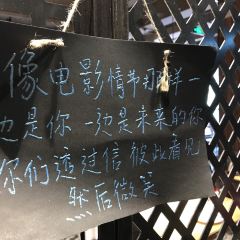 像电影情节那样一
边是你 一边是未来的你
你们透过信 彼此看见
然后微笑